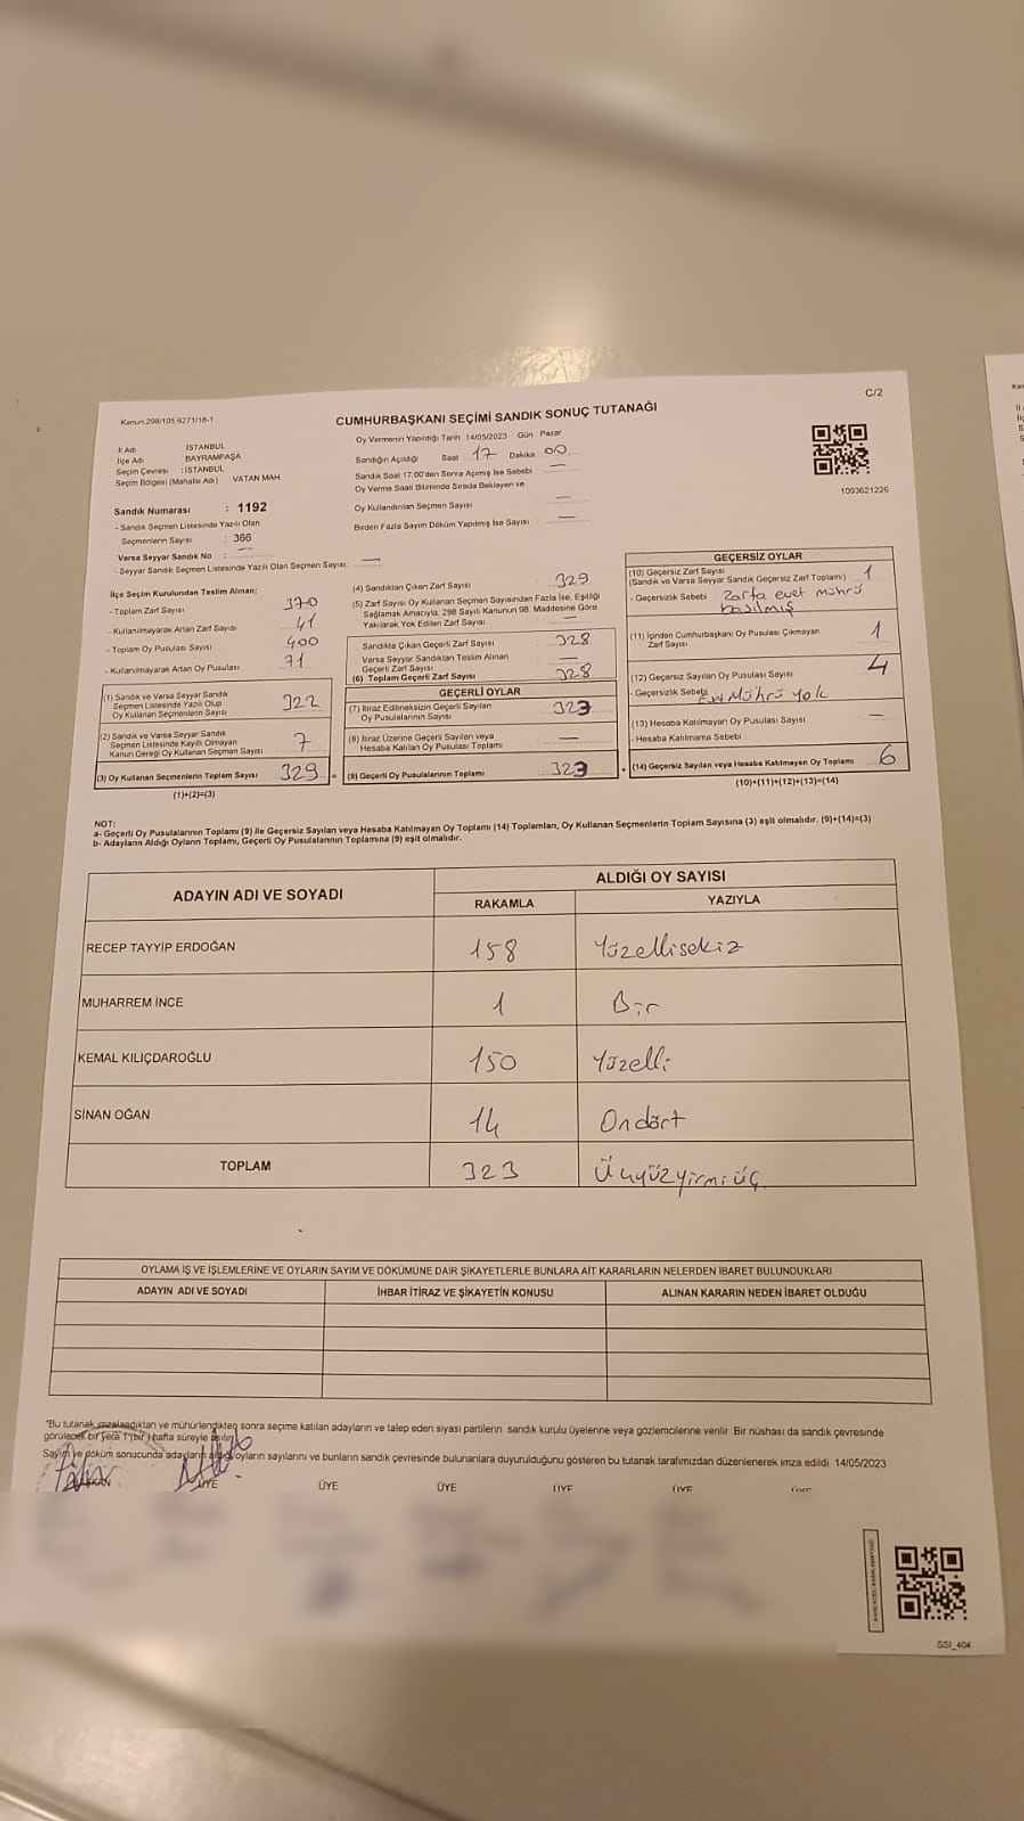 C/2
Kanun 298/105 6271/18-1
CUMHURBAŞKANI SEÇİMİ SANDIK SONUÇ TUTANAĞI
İl Adı : İSTANBUL
İlçe Adı : BAYRAMPAŞA
Seçim Çevresi : İSTANBUL
Seçim Bölgesi (Mahalle Adı) VATAN MAH
Sandık Numarası : 1192
- Sandık Seçmen Listesinde Yazılı Olan
Seçmenlerin Sayısı : 366
Varsa Seyyar Sandık No : —
- Seyyar Sandık Seçmen Listesinde Yazılı Olan Seçmen Sayısı: —
Oy Vermenin Yapıldığı Tarih 14/05/2023 Gün Pazar
Sandığın Açıldığı Saat 17 Dakika 00
Sandık Saat 17:00'den Sonra Açılmış İse Sebebi —
Oy Verme Saati Bitiminde Sırada Bekleyen ve
Oy Kullandırılan Seçmen Sayısı —
Birden Fazla Sayım Döküm Yapılmış İse Sayısı —
1093621226
İlçe Seçim Kurulundan Teslim Alınan:
- Toplam Zarf Sayısı 370
- Kullanılmayarak Artan Zarf Sayısı 41
- Toplam Oy Pusulası Sayısı 400
- Kullanılmayarak Artan Oy Pusulası 71
(1) Sandık ve Varsa Seyyar Sandık
Seçmen Listesinde Yazılı Olup
Oy Kullanan Seçmenlerin Sayısı 322
(2) Sandık ve Varsa Seyyar Sandık
Seçmen Listesinde Kayıtlı Olmayan
Kanun Gereği Oy Kullanan Seçmen Sayısı 7
(3) Oy Kullanan Seçmenlerin Toplam Sayısı 329
(1)+(2)=(3)
(4) Sandıktan Çıkan Zarf Sayısı 329
(5) Zarf Sayısı Oy Kullanan Seçmen Sayısından Fazla İse, Eşitliği
Sağlamak Amacıyla, 298 Sayılı Kanunun 98. Maddesine Göre
Yakılarak Yok Edilen Zarf Sayısı —
Sandıkta Çıkan Geçerli Zarf Sayısı 328
Varsa Seyyar Sandıktan Teslim Alınan
Geçerli Zarf Sayısı —
(6) Toplam Geçerli Zarf Sayısı 328
GEÇERLİ OYLAR
(7) İtiraz Edilmeksizin Geçerli Sayılan
Oy Pusulalarının Sayısı 323
(8) İtiraz Üzerine Geçerli Sayılan veya
Hesaba Katılan Oy Pusulası Toplamı —
(9) Geçerli Oy Pusulalarının Toplamı 323
GEÇERSİZ OYLAR
(10) Geçersiz Zarf Sayısı
(Sandık ve Varsa Seyyar Sandık Geçersiz Zarf Toplamı) 1
- Geçersizlik Sebebi Zarfa evet mührü
basılmış
(11) İçinden Cumhurbaşkanı Oy Pusulası Çıkmayan
Zarf Sayısı 1
(12) Geçersiz Sayılan Oy Pusulası Sayısı 4
- Geçersizlik Sebebi Mührü yok
(13) Hesaba Katılmayan Oy Pusulası Sayısı —
- Hesaba Katılmama Sebebi
(14) Geçersiz Sayılan veya Hesaba Katılmayan Oy Toplamı 6
(10)+(11)+(12)+(13)=(14)
NOT:
a- Geçerli Oy Pusulalarının Toplamı (9) ile Geçersiz Sayılan veya Hesaba Katılmayan Oy Toplamı (14) Toplamları, Oy Kullanan Seçmenlerin Toplam Sayısına (3) eşit olmalıdır. (9)+(14)=(3)
b- Adayların Aldığı Oyların Toplamı, Geçerli Oy Pusulalarının Toplamına (9) eşit olmalıdır.
ADAYIN ADI VE SOYADI ALDIĞI OY SAYISI
RAKAMLA YAZIYLA
RECEP TAYYİP ERDOĞAN 158 Yüzellisekiz
MUHARREM İNCE 1 Bir
KEMAL KILIÇDAROĞLU 150 Yüzelli
SİNAN OĞAN 14 Ondört
TOPLAM 323 Üçyüzyirmiüç
OYLAMA İŞ VE İŞLEMLERİNE VE OYLARIN SAYIM VE DÖKÜMÜNE DAİR ŞİKAYETLERLE BUNLARA AİT KARARLARIN NELERDEN İBARET BULUNDUKLARI
ADAYIN ADI VE SOYADI İHBAR İTİRAZ VE ŞİKAYETİN KONUSU ALINAN KARARIN NEDEN İBARET OLDUĞU
"Bu tutanak imzalandıktan ve mühürlendikten sonra seçime katılan adayların ve talep eden siyasi partilerin sandık kurulu üyelerine veya gözlemcilerine verilir. Bir nüshası da sandık çevresinde
görülecek bir yere 1 (bir) hafta süreyle asılır.
Sayım ve döküm sonucunda adayların aldığı oyların sayılarını ve bunların sandık çevresinde bulunanlara duyurulduğunu gösteren bu tutanak tarafımızdan düzenlenerek imza edildi. 14/05/2023
BAŞKAN ÜYE ÜYE ÜYE ÜYE ÜYE
SSI_404